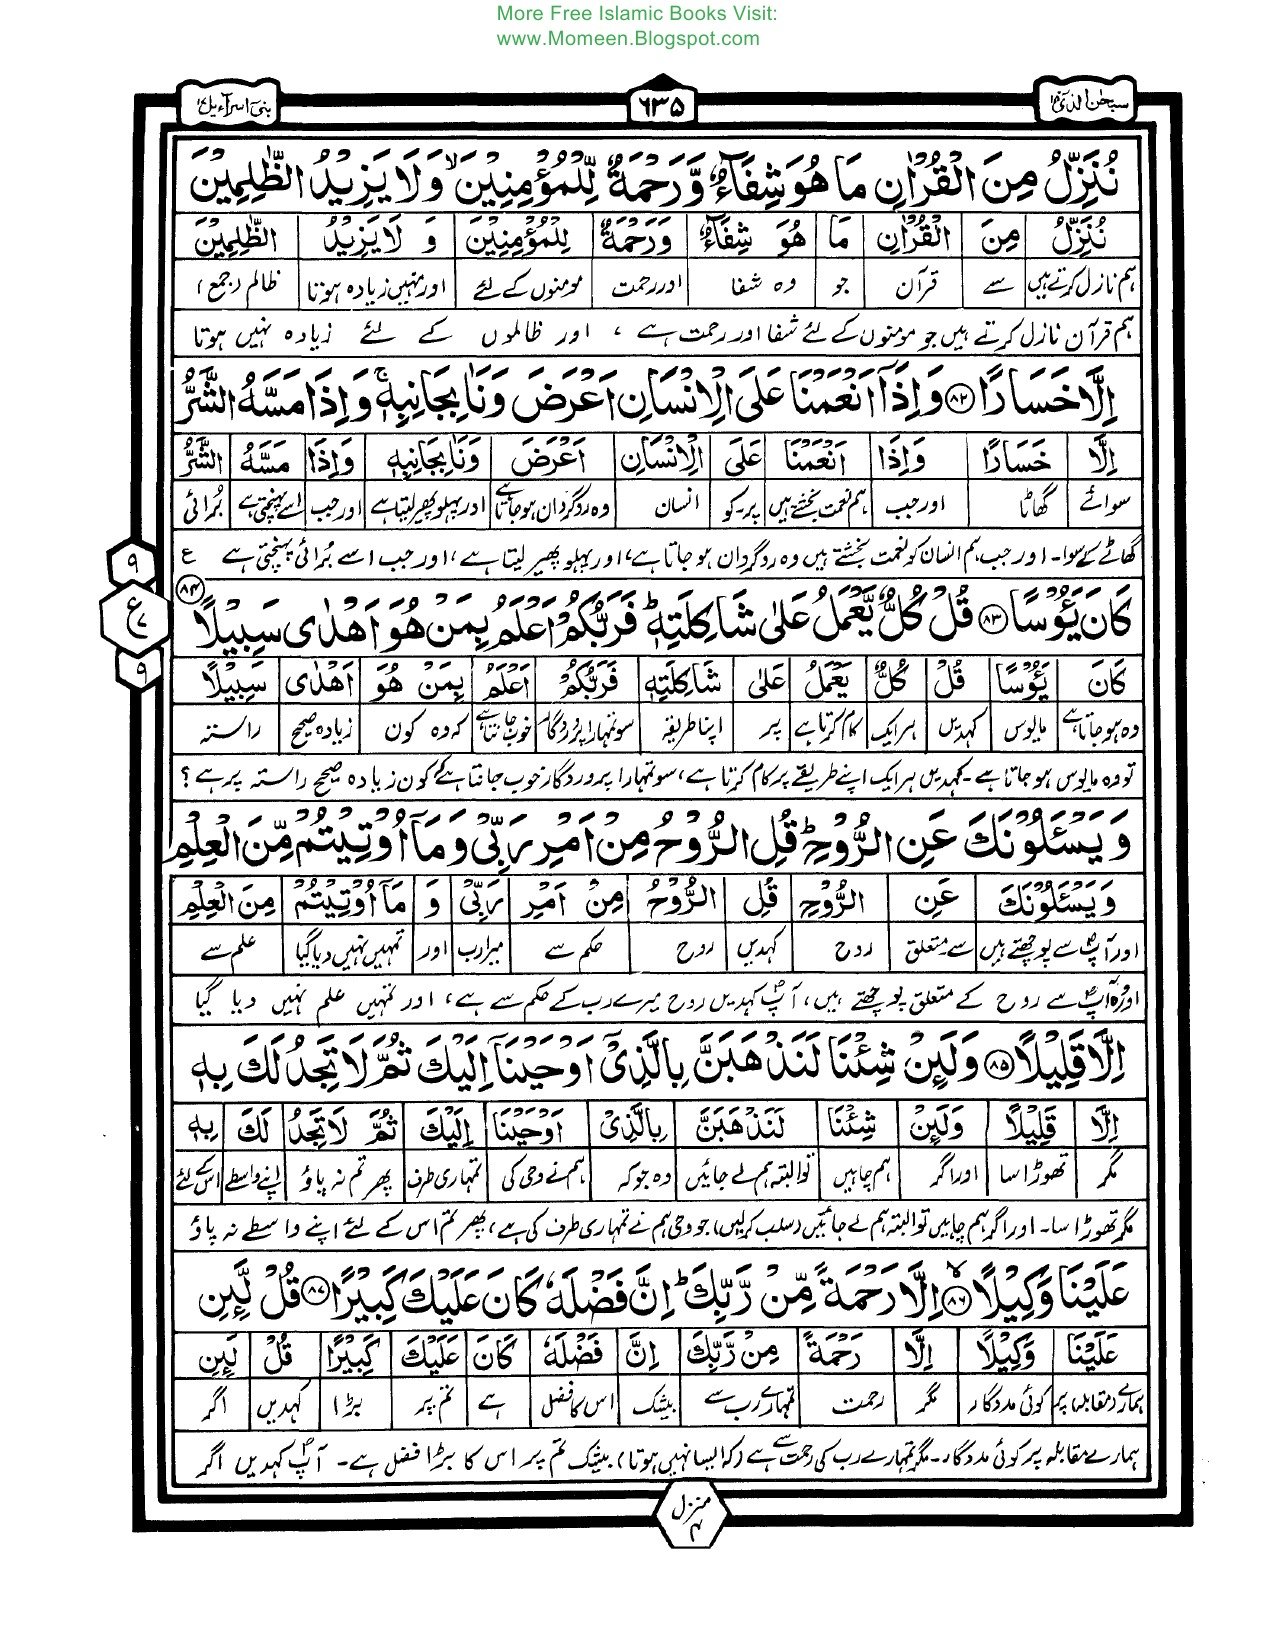 More Free Islamic Books Visit:
www.Momeen.Blogspot.com
سبحٰن الذی
٦٣٥
بنی اسرآءیل
نُنَزِّلُ مِنَ الْقُرْاٰنِ مَا هُوَ شِفَآءٌ وَّرَحْمَةٌ لِّلْمُؤْمِنِيْنَ ۙ وَلَا يَزِيْدُ الظّٰلِمِيْنَ
نُنَزِّلُ مِنَ الْقُرْاٰنِ مَا هُوَ شِفَآءٌ وَرَحْمَةٌ لِلْمُؤْمِنِيْنَ وَ لَا يَزِيْدُ الظّٰلِمِيْنَ
ہم نازل کرتے ہیں سے قرآن جو وہ شفا اور رحمت مومنوں کے لئے اور نہیں زیادہ ہوتا ظالم (جمع)
ہم قرآن نازل کرتے ہیں جو مومنوں کے لئے شفا اور رحمت ہے ، اور ظالموں کے لئے زیادہ نہیں ہوتا
اِلَّا خَسَارًا ۸۲ وَاِذَآ اَنْعَمْنَا عَلَى الْاِنْسَانِ اَعْرَضَ وَنَاٰ بِجَانِبِهٖ ۚ وَاِذَا مَسَّهُ الشَّرُّ
اِلَّا خَسَارًا وَاِذَا اَنْعَمْنَا عَلَى الْاِنْسَانِ اَعْرَضَ وَنَاٰ بِجَانِبِهٖ وَاِذَا مَسَّهُ الشَّرُّ
سوائے گھاٹا اور جب ہم نعمت بخشتے ہیں پر۔کو انسان وہ روگردان ہو جاتا ہے اور پہلو پھیر لیتا ہے اور جب اسے پہنچتی ہے بُرائی
گھاٹے کے سوا۔ اور جب ہم انسان کو نعمت بخشتے ہیں وہ روگردان ہو جاتا ہے، اور پہلو پھیر لیتا ہے، اور جب اسے بُرائی پہنچتی ہے ع
۹
ع
۷
۹
كَانَ يَـُٔوْسًا ۸۳ قُلْ كُلٌّ يَّعْمَلُ عَلٰى شَاكِلَتِهٖ ؕ فَرَبُّكُمْ اَعْلَمُ بِمَنْ هُوَ اَهْدٰى سَبِيْلًا ۸۴
كَانَ يَـُٔوْسًا قُلْ كُلٌّ يَعْمَلُ عَلٰى شَاكِلَتِهٖ فَرَبُّكُمْ اَعْلَمُ بِمَنْ هُوَ اَهْدٰى سَبِيْلًا
وہ ہو جاتا ہے مایوس کہدیں ہر ایک کام کرتا ہے پر اپنا طریقہ سو تمہارا پروردگار خوب جانتا ہے کہ وہ کون زیادہ صحیح راستہ
تو وہ مایوس ہو جاتا ہے۔ کہدیں ہر ایک اپنے طریقے پر کام کرتا ہے، سو تمہارا پروردگار خوب جانتا ہے کہ کون زیادہ صحیح راستہ پر ہے ؟
وَيَسْـَٔلُوْنَكَ عَنِ الرُّوْحِ ؕ قُلِ الرُّوْحُ مِنْ اَمْرِ رَبِّيْ وَمَآ اُوْتِيْتُمْ مِّنَ الْعِلْمِ
وَيَسْـَٔلُوْنَكَ عَنِ الرُّوْحِ قُلِ الرُّوْحُ مِنْ اَمْرِ رَبِّيْ وَ مَآ اُوْتِيْتُمْ مِنَ الْعِلْمِ
اور آپؐ سے پوچھتے ہیں سے متعلق روح کہدیں روح حکم سے میرا رب اور تمہیں نہیں دیا گیا علم سے
اور وہ آپؐ سے روح کے متعلق پوچھتے ہیں، آپؐ کہدیں روح میرے رب کے حکم سے ہے، اور تمہیں علم نہیں دیا گیا
اِلَّا قَلِيْلًا ۸۵ وَلَئِنْ شِئْنَا لَنَذْهَبَنَّ بِالَّذِيْٓ اَوْحَيْنَآ اِلَيْكَ ثُمَّ لَا تَجِدُ لَكَ بِهٖ
اِلَّا قَلِيْلًا وَلَئِنْ شِئْنَا لَنَذْهَبَنَّ بِالَّذِيْ اَوْحَيْنَآ اِلَيْكَ ثُمَّ لَا تَجِدُ لَكَ بِهٖ
مگر تھوڑا سا اور اگر ہم چاہیں تو البتہ ہم لے جائیں وہ جو کہ ہم نے وحی کی تمہاری طرف پھر تم نہ پاؤ اپنے واسطے اس کے لئے
مگر تھوڑا سا۔ اور اگر ہم چاہیں تو البتہ ہم لے جائیں (سلب کرلیں) جو وحی ہم نے تمہاری طرف کی ہے، پھر تم اس کے لئے اپنے واسطے نہ پاؤ
عَلَيْنَا وَكِيْلًا ۸۶ اِلَّا رَحْمَةً مِّنْ رَّبِّكَ ؕ اِنَّ فَضْلَهٗ كَانَ عَلَيْكَ كَبِيْرًا ۸۷ قُلْ لَّئِنِ
عَلَيْنَا وَكِيْلًا اِلَّا رَحْمَةً مِنْ رَّبِّكَ اِنَّ فَضْلَهٗ كَانَ عَلَيْكَ كَبِيْرًا قُلْ لَئِنِ
ہمارے مقابلہ پر کوئی مددگار مگر رحمت تمہارے رب سے بیشک اس کا فضل ہے تم پر بڑا کہدیں اگر
ہمارے مقابلہ پر کوئی مددگار۔ مگر تمہارے رب کی رحمت سے ہے (کہ ایسا نہیں ہوتا) بیشک تم پر اس کا بڑا فضل ہے۔ آپؐ کہدیں اگر
منزل
۴